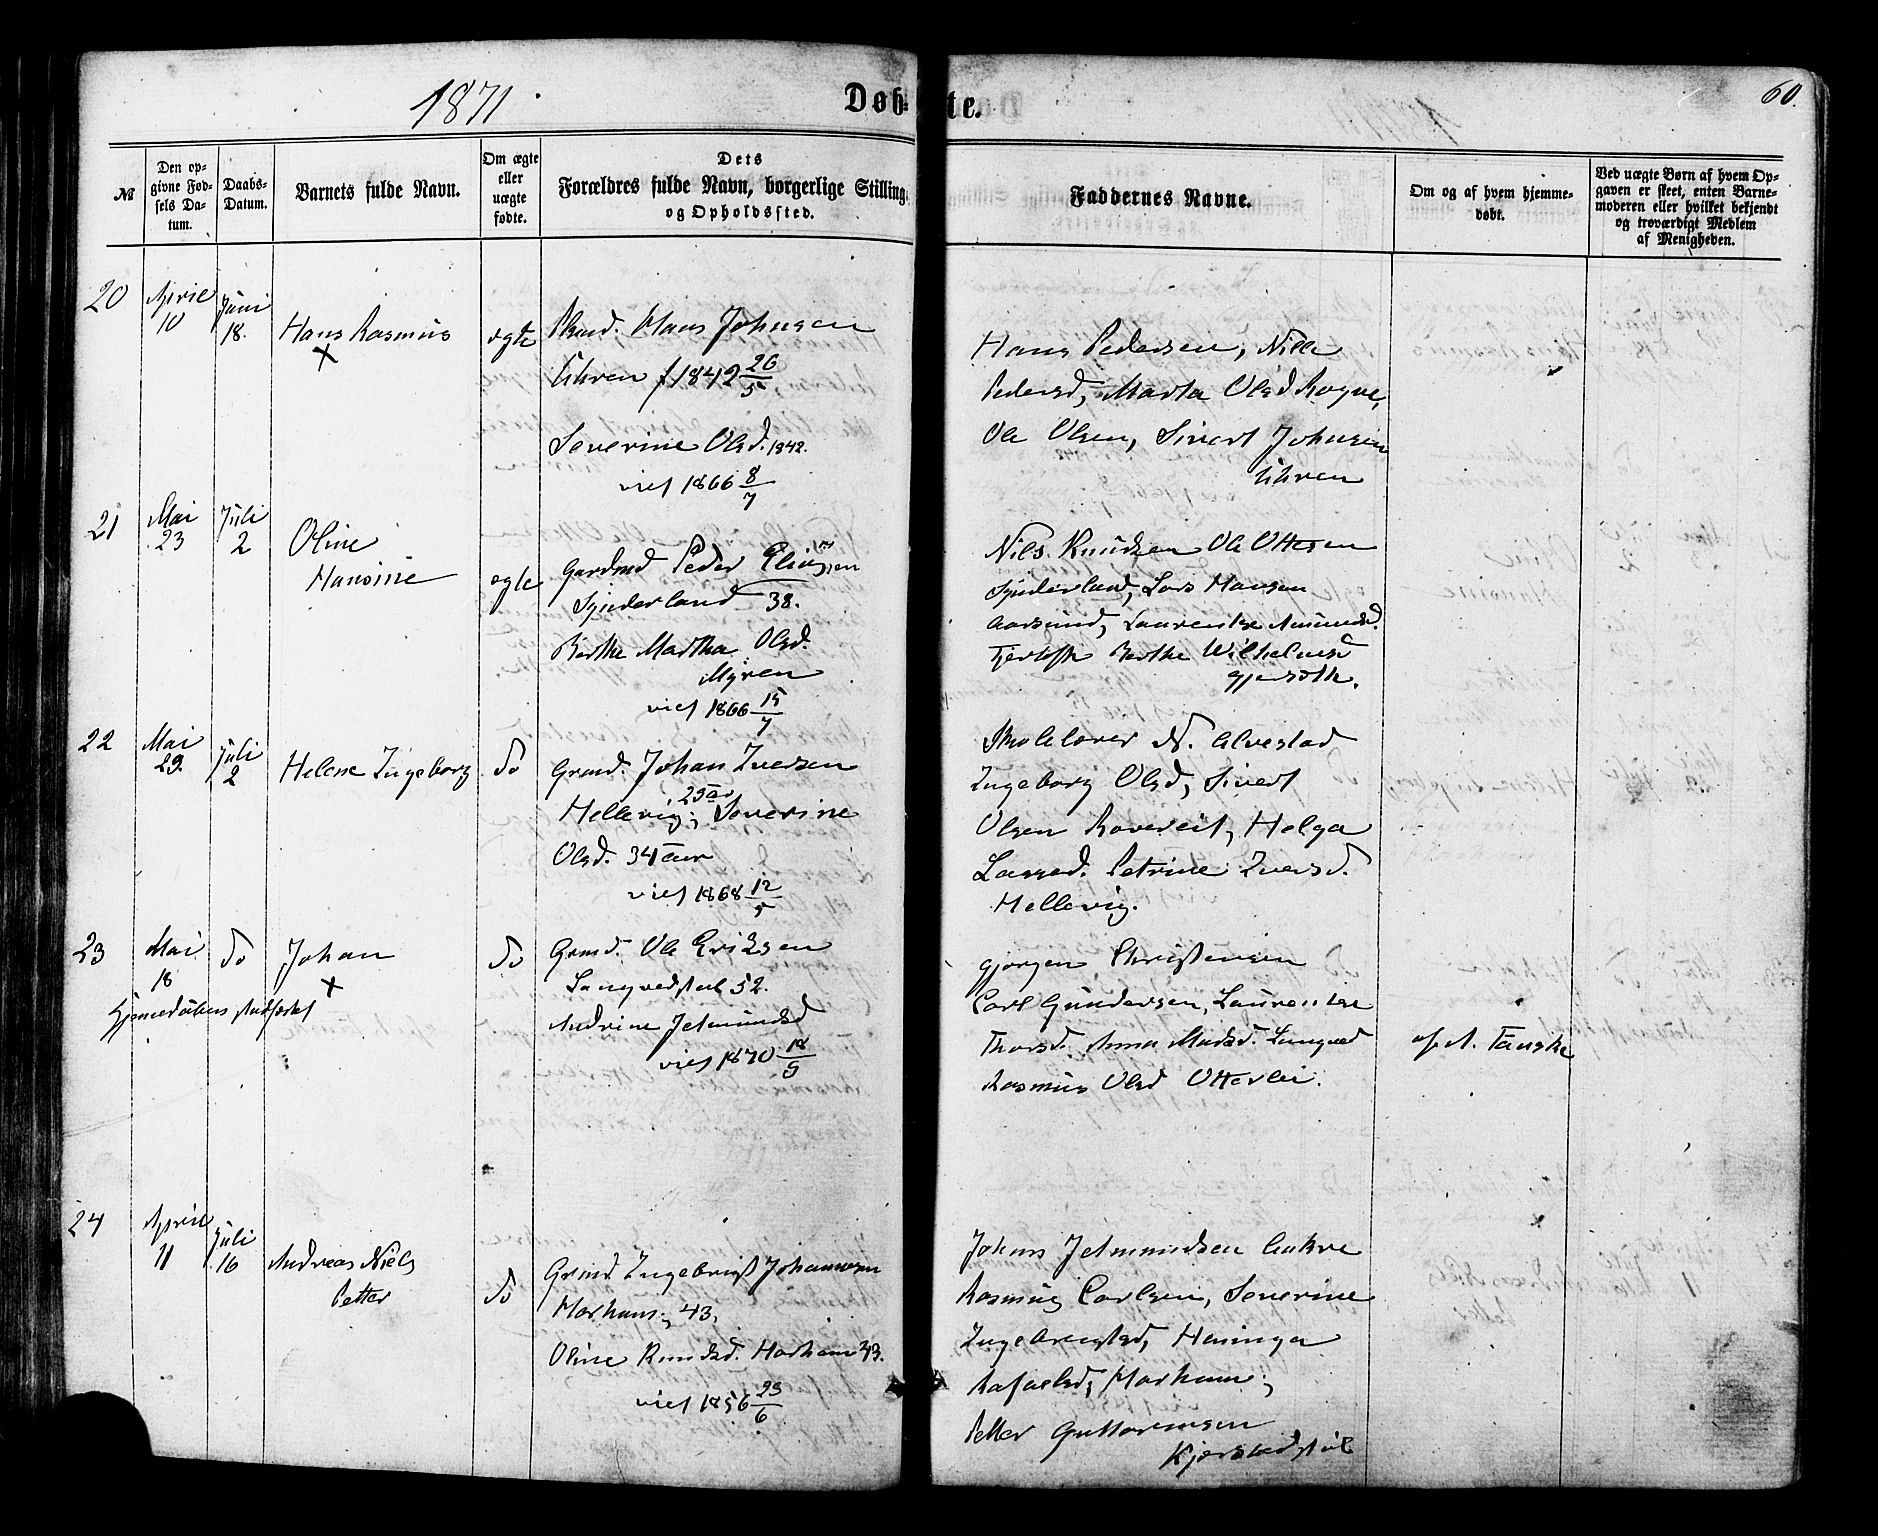 1871.
Døbte.
60.
№
Den opgivne Fødsels Datum.
Daabs-Datum.
Barnets fulde Navn.
Om ægte eller uægte fødte.
Dets Forældres fulde Navn, borgerlige Stilling og Opholdssted.
Faddernes Navne.
Om og af hvem hjemmedøbt.
Ved uægte Børn af hvem Opgaven er skeet, enten Barnemoderen eller hvilket bekjendt og troværdigt Medlem af Menigheden.
20
April 10
Juni 18.
Hans Rasmus
×
ægte
Hans Johnsen
Uhren f 1842 26/5
Severine Olsd. 1842.
viet 1866 8/7
Hans Pedersen, Nille
Pedersd, Marta Olsd Rogne,
Ole Olsen, Sivert Johnsen
Uhren
21
Mai 23
Juli 2
Oline
Hansine
ægte
Gardmd Peder Eliassen
Synderland 38.
Berthe Martha Olsd.
Myren
viet 1866 15/7
Nils Knudsen Ole Ottesen
Synderland, Lars Hansen
Aarsund, Laurentse Amundsd.
Fjertoft Berthe Wilhelmsd
22
Mai 29.
Juli 2
Helene Ingeborg
do
Grmd. Johan Iversen
Hellevig, 29 aar Severine
Olsd. 34 aar
viet 1868 12/5
Skolelærer N. Alvestad
Ingeborg Olsd, Sivert
Olsen Rovereit, Helga
Larsd. Petrine Iversd.
Hellevig.
23
Mai 18
do
Johan
×
do
Hjemmedaaben stadfæstet
Grmd. Ole Eriksen
Langvedstøl 52.
Andrine Jetmundsd
viet 1870 18/9
Gjørgen Christensen
Carl Gundersen, Laurentse
Thorsd. Anna Madsd. Langved
Rasmus Olsd Otterlei.
af A. Fauske
24
April 11
Juli 16
Andreas Niels
Petter
do
Grmd Ingebrigt Johannesen
Harham, 43,
Oline Knudsd. Harham 43.
viet 1856 29/6
Johans Jetmundsen Aakre
Rasmus Carlsen, Severine
Ingebrigtsd, Hansinga
Rafaelsd, Harham,
Petter Guttormsen
Kjerstadstøl